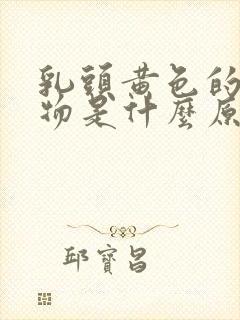 乳頭黃色的
物是什麼原
邱寶昌